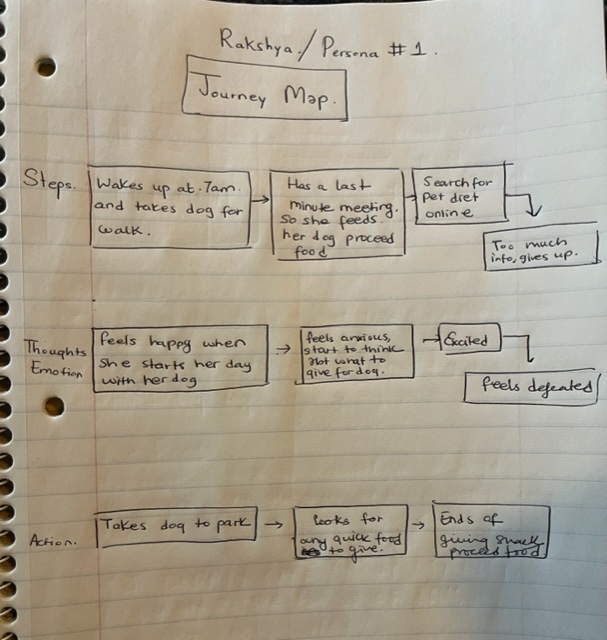 Rakshya./Persona #1.
Journey Map.
Steps.
Wakes up at 7am.
and takes dog for
walk.
Has a last
minute meeting.
So she feeds
her dog proceed
food
Search for
pet diet
online
Too much
info, gives up.
Thoughts
Emotion
feels happy when
she starts her day
with her dog
feels anxious,
start to think
abt what to
give for dog.
Excited
feels defeated
Action.
Takes dog to park
looks for
any quick food
to give.
Ends of
giving snack
proceed food